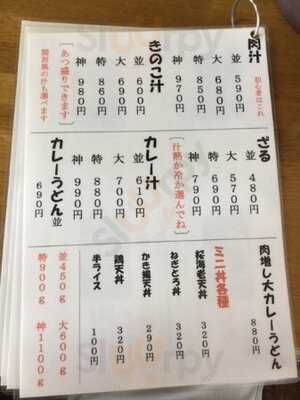 肉汁
初心者はこれ
並 590円
大 680円
特 850円
神 970円
きのこ汁
並 600円
大 690円
特 860円
神 980円
〔あつ盛りできます〕
関西風の汁も選べます
ざる
並 480円
大 570円
特 690円
神 790円
〔汁熱か冷か選んでね〕
カレー汁
並 610円
大 700円
特 880円
神 990円
カレーうどん並
690円
肉増し大カレーうどん
880円
ミニ丼各種
桜海老天丼 320円
ねぎとろ丼 320円
かき揚天丼 290円
鶏天丼 320円
半ライス 100円
並450g 大600g
特900g 神1100g